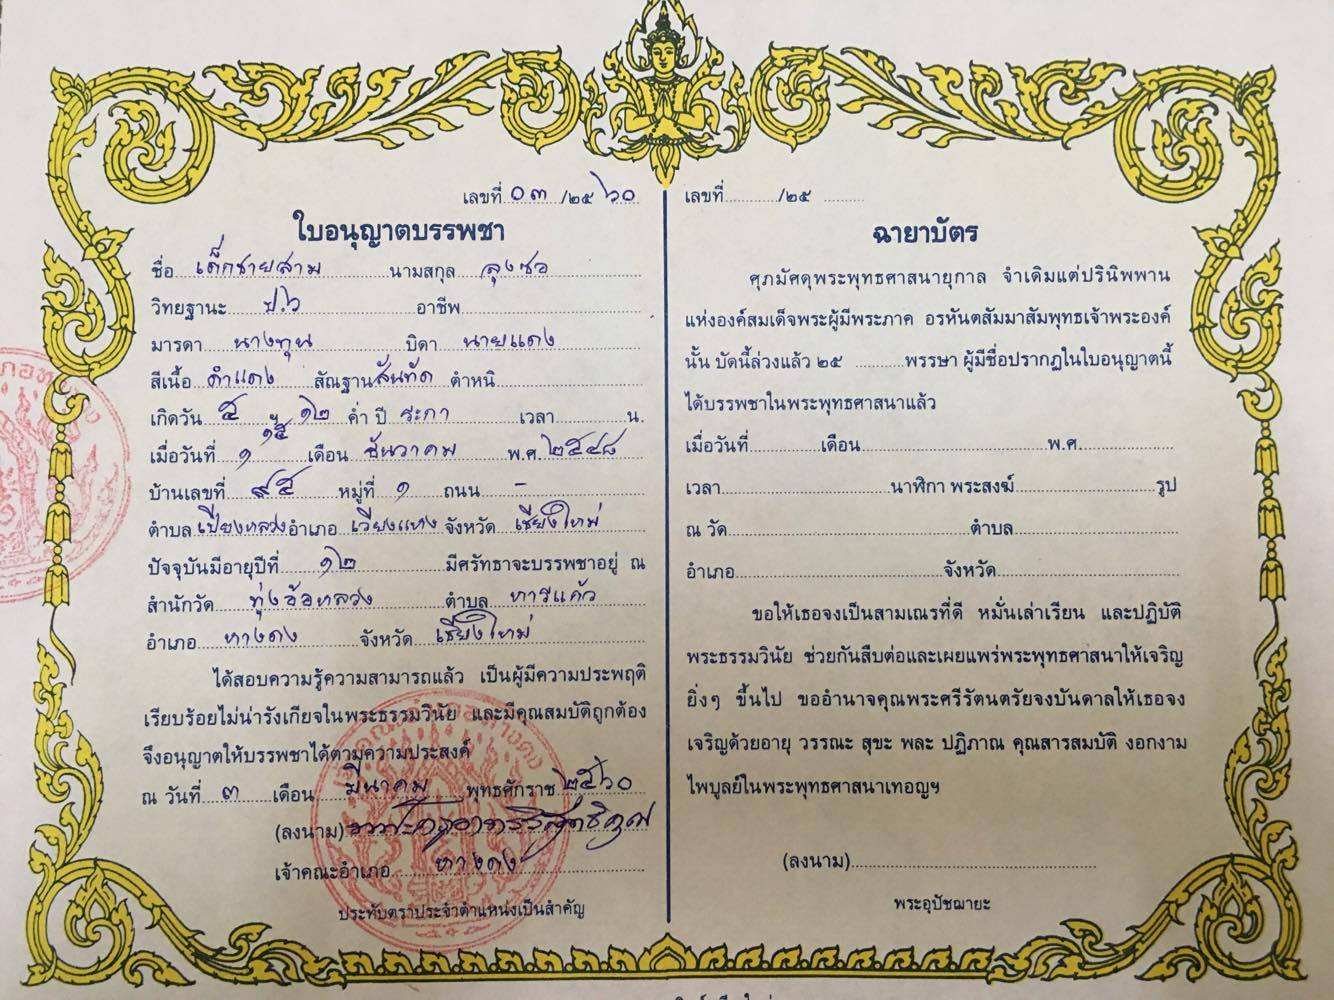 เลขที่ ๐๓ /๒๕๖๐
ใบอนุญาตบรรพชา
ชื่อ เด็กชายสาม นามสกุล ลุงซอ
วิทยฐานะ ป.๖ อาชีพ
มารดา นางทุน บิดา นายแดง
สีเนื้อ ดำแดง สัณฐาน สันทัด ตำหนิ
เกิดวัน ๕ ฯ ๑๒ ค่ำ ปี ระกา เวลา น.
๑๕
เมื่อวันที่ ๑ เดือน ธันวาคม พ.ศ. ๒๕๔๘
บ้านเลขที่ ๙๕ หมู่ที่ ๑ ถนน -
ตำบล เปียงหลวง อำเภอ เวียงแหง จังหวัด เชียงใหม่
ปัจจุบันมีอายุปีที่ ๑๒ มีศรัทธาจะบรรพชาอยู่ ณ
สำนักวัด ทุ่งอ้อหลวง ตำบล หารแก้ว
อำเภอ หางดง จังหวัด เชียงใหม่
ได้สอบความรู้ความสามารถแล้ว เป็นผู้มีความประพฤติ
เรียบร้อยไม่น่ารังเกียจในพระธรรมวินัย และมีคุณสมบัติถูกต้อง
จึงอนุญาตให้บรรพชาได้ตามความประสงค์
ณ วันที่ ๓ เดือน มีนาคม พุทธศักราช ๒๕๖๐
(ลงนาม)
เจ้าคณะอำเภอ หางดง
ประทับตราประจำตำแหน่งเป็นสำคัญ
เลขที่ /๒๕
ฉายาบัตร
ศุภมัศดุพระพุทธศาสนายุกาล จำเดิมแต่ปรินิพพาน
แห่งองค์สมเด็จพระผู้มีพระภาค อรหันตสัมมาสัมพุทธเจ้าพระองค์
นั้น บัดนี้ล่วงแล้ว ๒๕ พรรษา ผู้มีชื่อปรากฏในใบอนุญาตนี้
ได้บรรพชาในพระพุทธศาสนาแล้ว
เมื่อวันที่ เดือน พ.ศ.
เวลา นาฬิกา พระสงฆ์ รูป
ณ วัด ตำบล
อำเภอ จังหวัด
ขอให้เธอจงเป็นสามเณรที่ดี หมั่นเล่าเรียน และปฏิบัติ
พระธรรมวินัย ช่วยกันสืบต่อและเผยแพร่พระพุทธศาสนาให้เจริญ
ยิ่งๆ ขึ้นไป ขออำนาจคุณพระศรีรัตนตรัยจงบันดาลให้เธอจง
เจริญด้วยอายุ วรรณะ สุขะ พละ ปฏิภาณ คุณสารสมบัติ งอกงาม
ไพบูลย์ในพระพุทธศาสนาเทอญฯ
(ลงนาม)
พระอุปัชฌายะ